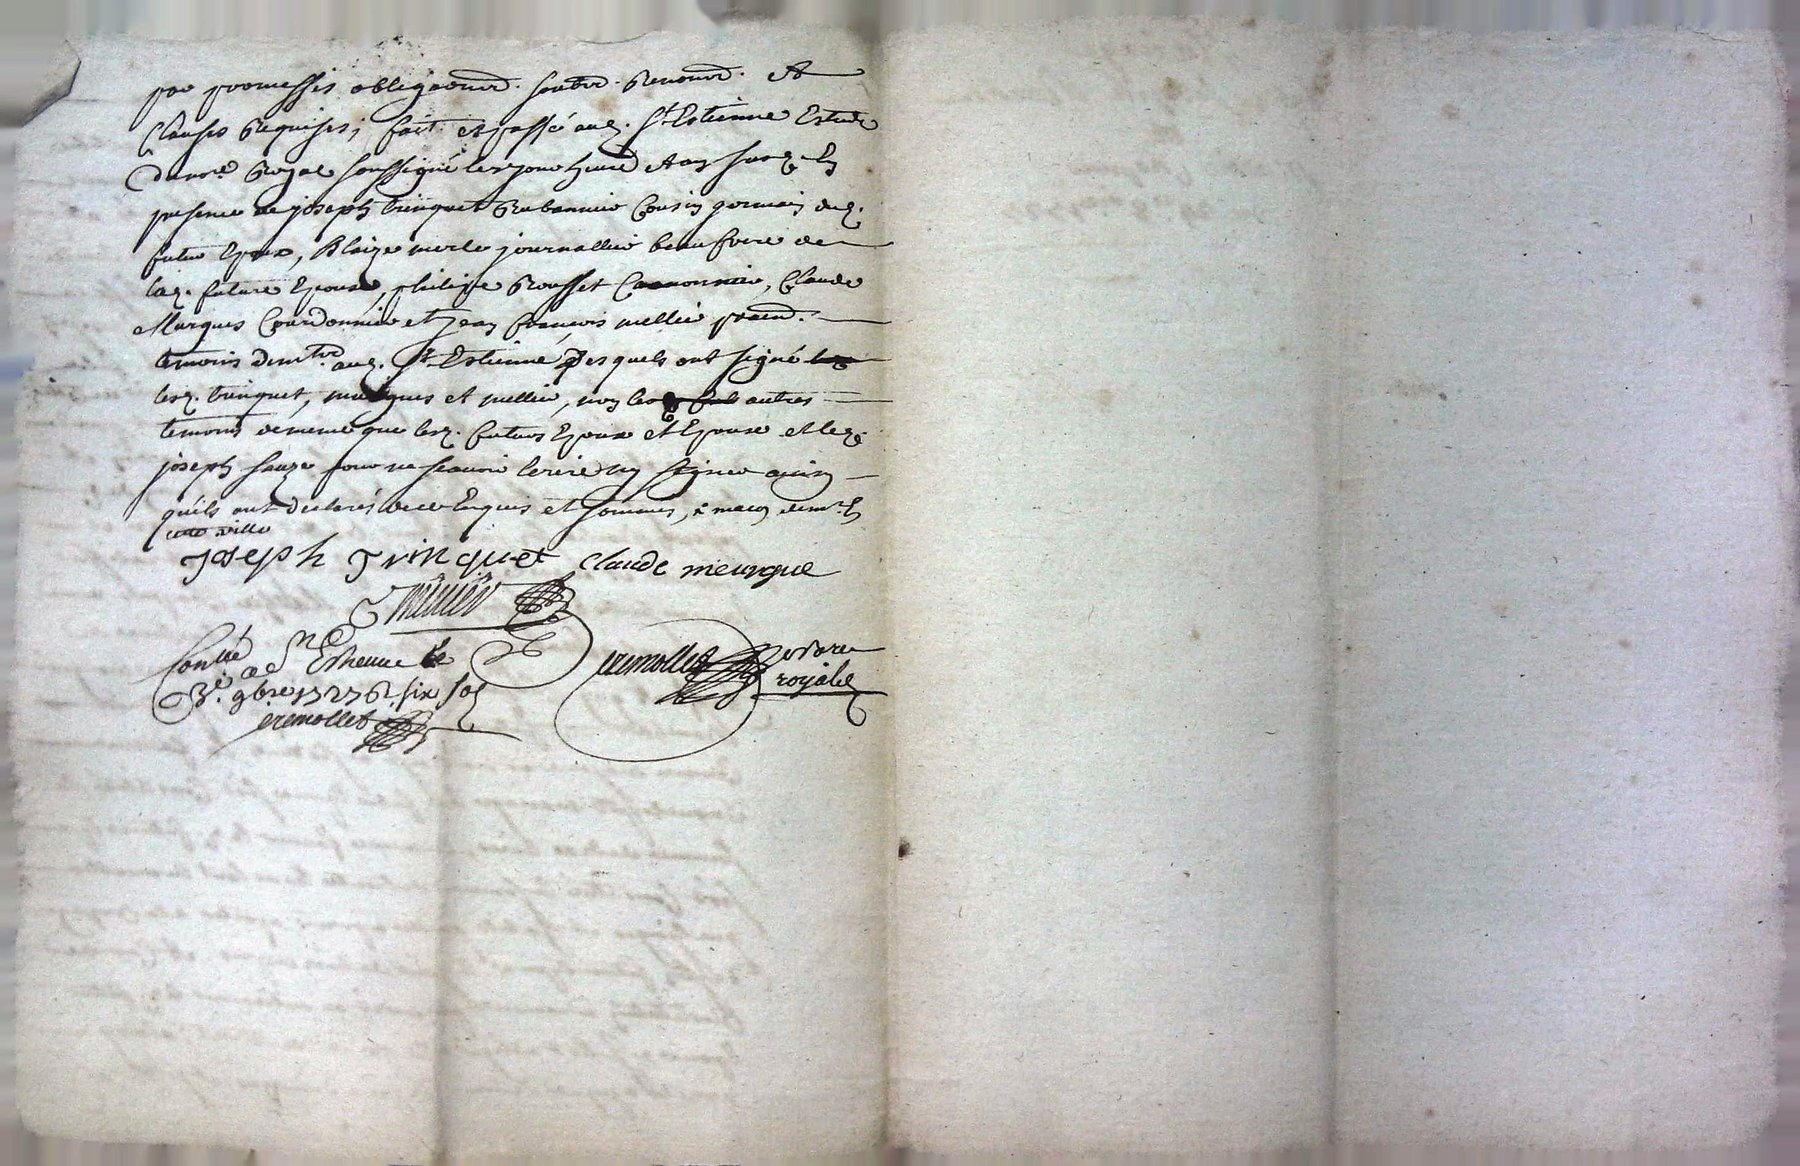 par promesses obligaōns. soubz. Renonz. Et
Clauses Requises; fait et passé aud. St Estienne Estude
du no.re Royal soussigné les jour heure et an susd. En
presence de joseph trinquet Rubannier Cousin germain dud.
futur Epoux, Blaize merle journallier beaufrere de
lad. future Epouse, philippe Rousset Canonnier, Claude
Murgues Courdonnier et jean francois mellier pratic.
temoins demtz. aud. St Estienne desquels ont signé
lesd. trinquet, murgues et mellier, non les autres
temoins de meme que lesd. futurs Epoux et Epouse et led.
joseph sauze pour ne scavoir Ecrire ny signer ainsy
qu'ils ont declarés de ce Enquis et sommés,
cette ville
joseph Trinquet Claude meurgue
Mellier
Conllé a St Estienne le
3e. 9bre 1727 six sols
cremollet
cremollet no.re
royal